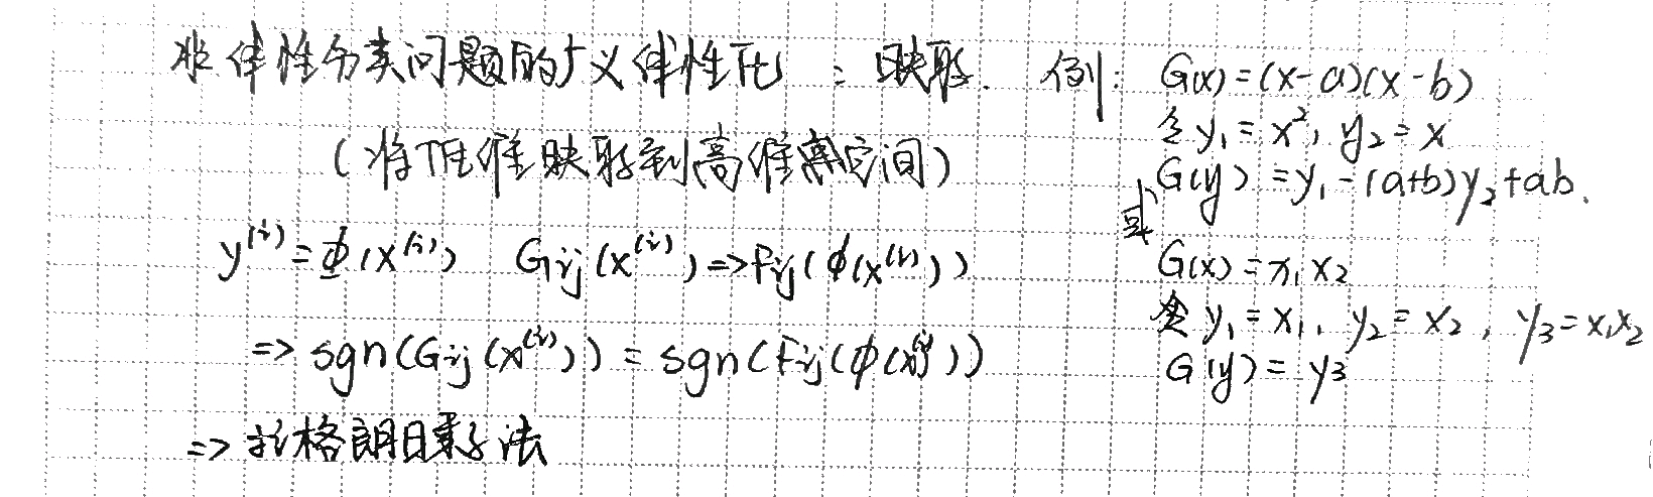 非线性分类问题的广义线性化：映射.
(将低维映射到高维空间)
y⁽ⁱ⁾=Φ(x⁽ⁱ⁾)  Gij(x⁽ⁱ⁾)=>Fij(ϕ(x⁽ⁱ⁾))
=> sgn(Gij(x⁽ⁱ⁾)) = sgn(Fij(ϕ(x⁽ⁱ⁾)))
=> 拉格朗日乘子法
例: G(x)=(x-a)(x-b)
令 y₁=x², y₂=x
G(y)=y₁-(a+b)y₂+ab.
或
G(x)=x₁x₂
令 y₁=x₁, y₂=x₂, y₃=x₁x₂
G(y)=y₃